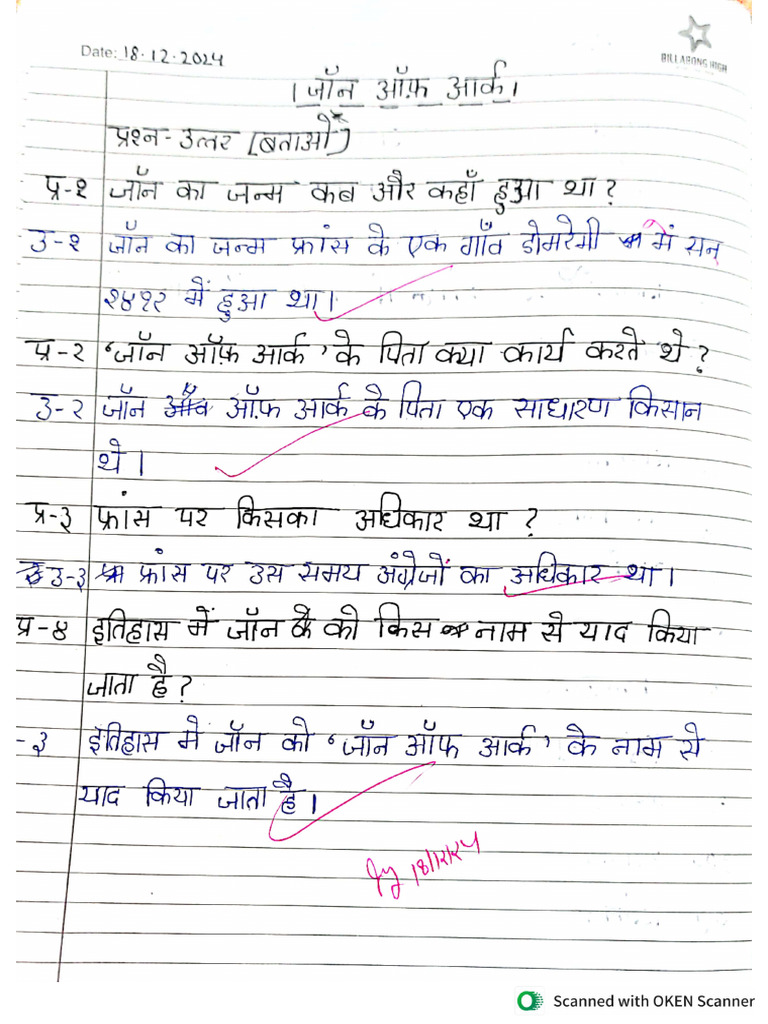 Date: 18.12.2024
BILLABONG HIGH
। जॉन ऑफ़ आर्क।
प्रश्न-उत्तर [बताओ]
प्र-१ जॉन का जन्म कब और कहाँ हुआ था?
उ-१ जॉन का जन्म फ्रांस के एक गाँव डोमरेमी में सन्
१४१२ में हुआ था।
प्र-२ 'जॉन ऑफ़ आर्क' के पिता क्या कार्य करते थे?
उ-२ जॉन ऑफ़ आर्क के पिता एक साधारण किसान
थे।
प्र-३ फ्रांस पर किसका अधिकार था?
उ-३ फ्रांस पर उस समय अंग्रेजों का अधिकार था।
प्र-४ इतिहास में जॉन को किस नाम से याद किया
जाता है?
-३ इतिहास मे जॉन को 'जॉन ऑफ आर्क' के नाम से
याद किया जाता है।
18/12/24
Scanned with OKEN Scanner